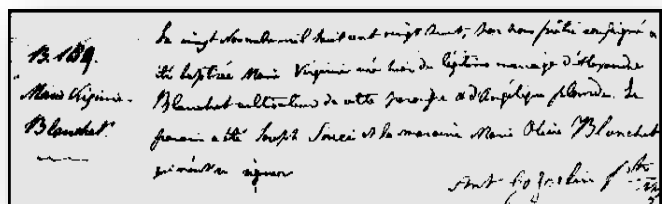 B. 189.
Marie Virginie
Blanchet.
Le vingt Novembre mil huit cent vingt huit, par nous prêtre soussigné a
été baptisée Marie Virginie née hier du légitime mariage d'Alexandre
Blanchet cultivateur de cette paroisse et d'Angélique Plourde. Le
parain a été Joseph Soucy et la maraine Marie Olive Blanchet
qui n'ont su signer
Ant. Gosselin Ptre